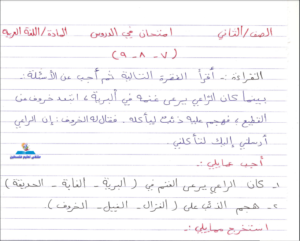 الصف/الثاني امتحان في الدروس المادة/اللغة العربية
(٧ - ٨ - ٩)
القراءة:- أقرأ الفقرة التالية ثم أجب عن الأسئلة:
بينما كان الراعي يرعى غنمه في البرية، ابتعد خروف عن
القطيع، فهجم عليه ذئب ليأكله. فقال له الخروف: إن الراعي
أرسلني إليك لتأكلني.
أجب عما يلي:-
١- كان الراعي يرعى الغنم في (البرية - الغابة - الحديقة)
٢- هجم الذئب على (الغزال - الفيل - الخروف).
استخرج مما يلي:-